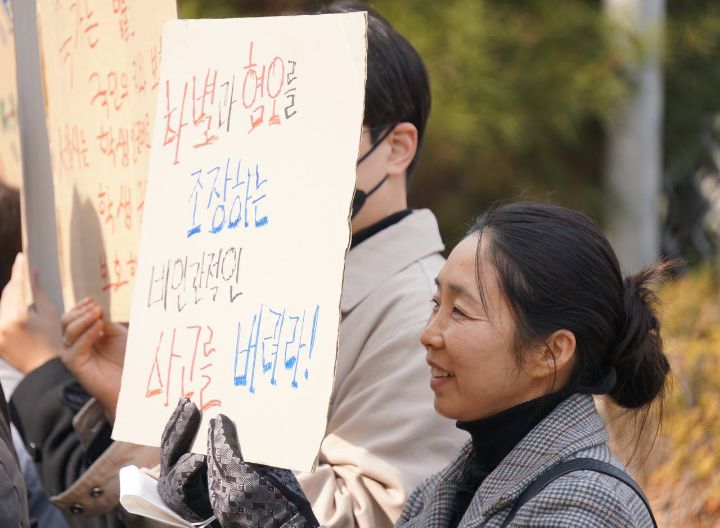 차별과 혐오를
조장하는
비인간적인
사고를 버려라!
국민의
학생
학생